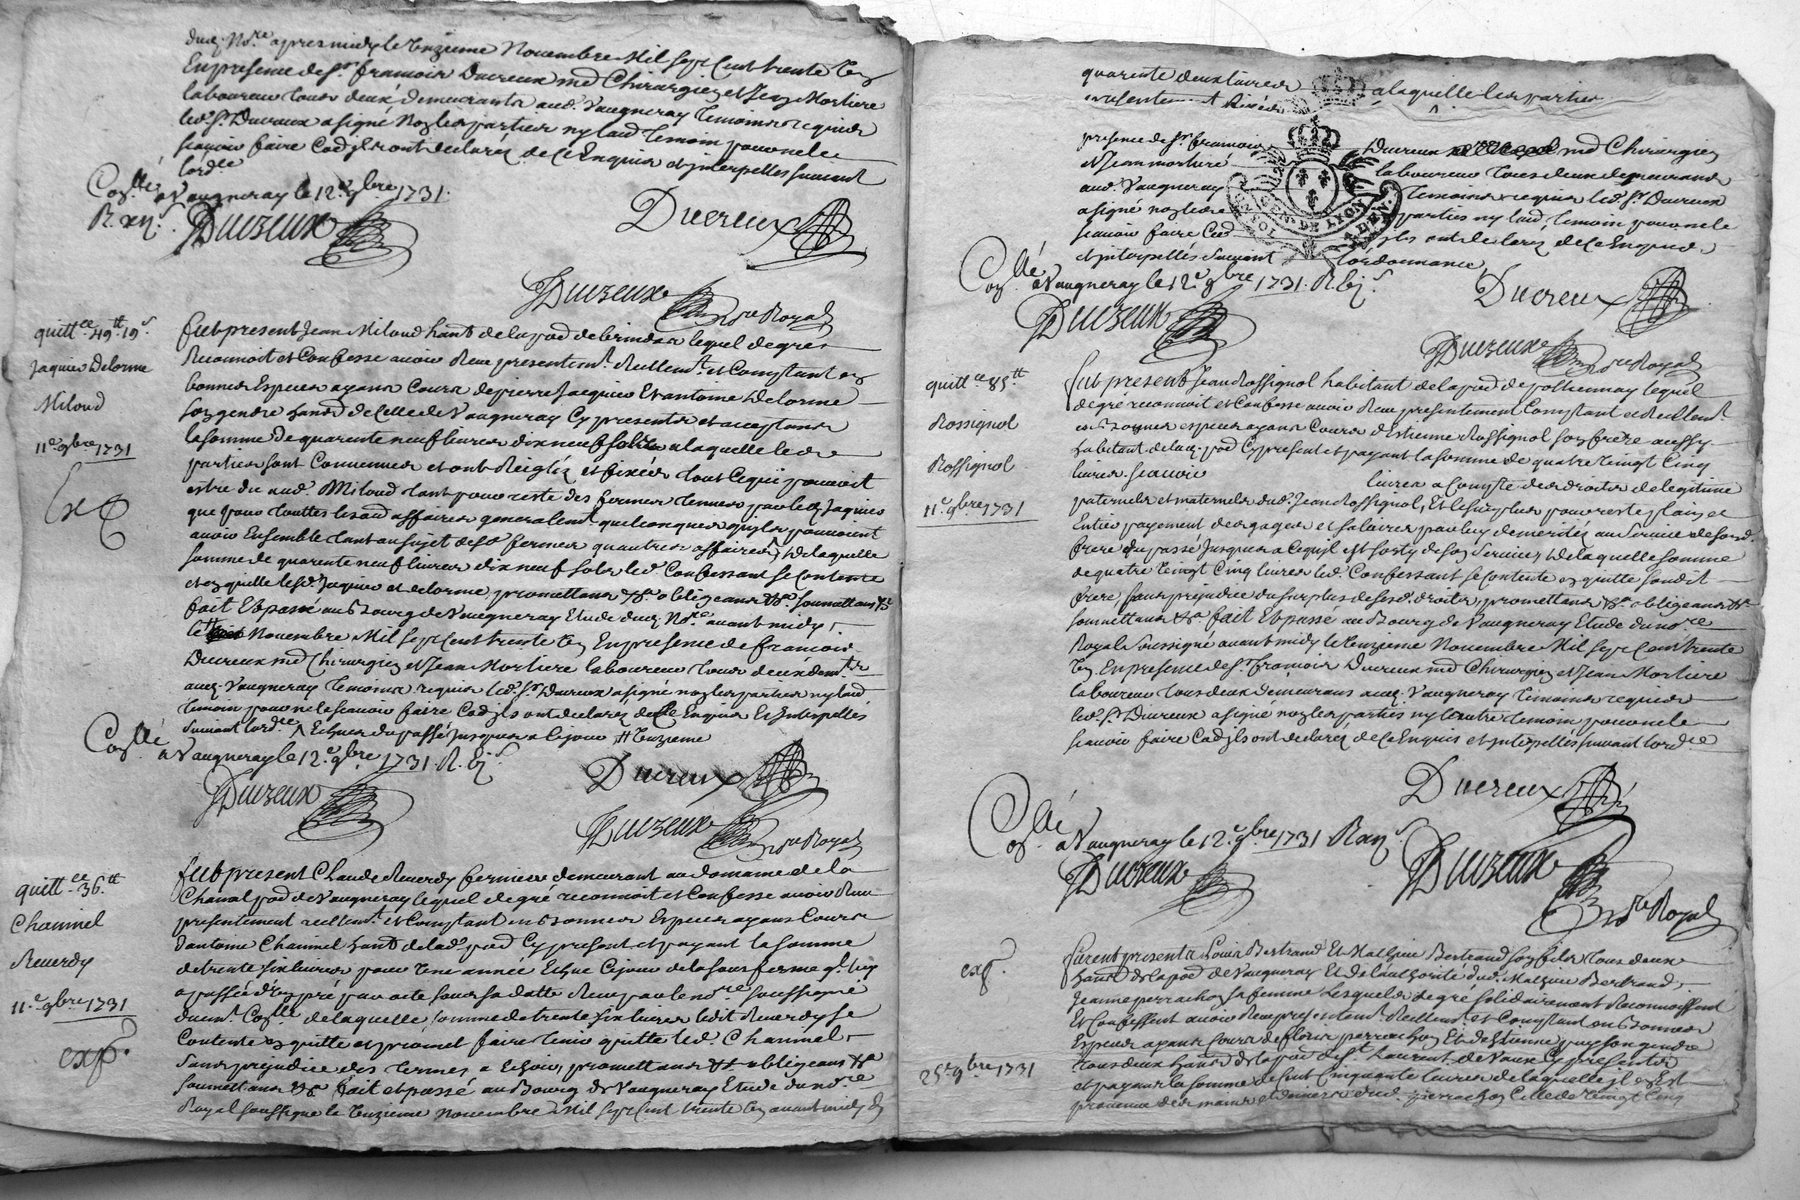 dud. No.re apres midy le unzieme Novembre Mil sept cent trente un
En presence de s.r francois Ducreux md Chirurgien et Jean Mortiere
laboureur tous deux demeurants aud. Vaugneray temoins requis
led. s.r Ducreux a signé non les parties ny laud. temoin pour ne le
scavoir faire Comme ils ont declarez de ce Enquis et interpellez suivant
lord.ce
Con.llé a Vaugneray le 12.e 9bre 1731.
R. xii s.
Duizeux
Ducreux
Duizeux no.re Royal
quitt.ce 49.tt 19.s
Jaquier Delorme
Miloud
11.e 9bre 1731
fut present Jean Miloud hant de la par de brindas lequel de gré
Reconnoit et Confesse avoir Receu presentem.t Reellem.t et Comptant en
bonnes Especes ayans Cours de pierre Jacquier Et antoine Delorme
son gendre hants de Celle de Vaugneray Cy presents et acceptans
la somme de quarente neuf livres dix neuf sols a laquelle les
parties sont Convenues et ont Reiglez et fixées tout Ce qui pouvoit
estre du aud. Miloud tant pour reste des fermes tenues par led. Jaquier
que pour touttes les aud affaires generalem.t quelconques quils pouvoient
avoir Ensemble tant au sujet desd. fermes qu'autres affaires de laquelle
somme de quarente neuf livres dix neuf sols led. Confessant se Contente
et en quitte lesd. Jaquier et delorme, promettans &a. obligeans &a. soumettans &a
fait Et passé au Bourg de Vaugneray Etude dud. No.re avant midy
le Novembre Mil sept cent trente un En presence de francois
Ducreux md Chirurgien et Jean Mortiere laboureur tous deux dem.ts
aud. Vaugneray temoins requis led. s.r Ducreux a signé non les parties ny laud.
temoin pour ne le scavoir faire Comme ils ont declarez de Ce Enquis Et Interpellés
suivant lord.ce Echues du passé jusques a Ce jour # unzieme
Con.llé a Vaugneray le 12.e 9bre 1731. R.
Duizeux
Ducreux
Duizeux no.re Royal
quitt.ce 36.tt
Chamiel
Reverdy
11.e 9bre 1731
exp.
fut present Claude Reverdy fermier demeurant au domaine de la
Chanal par de Vaugneray lequel de gré reconnoit et Confesse avoir Receu
presentement reellem.t et Comptant en Bonnes Especes ayans Cours
dantoine Chamiel hant de lad. par Cy present et payant la somme
de trente six livres pour une année Echue Ce jour de la sousferme
passée d'un pré par acte sous sa datte Receu par le no.re soussigné
de laquelle somme de trente six livres ledit Reverdy se
Contente en quitte et promet faire tenir quitte led. Chamiel
sans prejudice des termes a Echoir, promettans &a obligeans &a
soumettans &a fait et passé au Bourg de Vaugneray Etude du no.re
Royal soussigné le unzieme novembre Mil sept cent trente un avant midy En
quarente deux livres a laquelle les parties
presence de s.r francois Ducreux md Chirurgien
et Jean Mortiere laboureur tous deux demeurans
aud. Vaugneray temoins requis led. s.r Ducreux
a signé non les parties ny laud. temoin pour ne le
scavoir faire Comme ils ont declarez de Ce Enquis
et interpellés suivant lordonnance
GEN. DE LYON
Con.llé a Vaugneray le 12.e 9bre 1731. R.
Duizeux
Ducreux
Duizeux no.re Royal
quitt.ce 85.tt
Rossignol
Rossignol
11.e 9bre 1731
fut present Jean Rossignol habitant de la par de pollionnay lequel
de gré reconnoit et Confesse avoir Receu presentement Comptant et Reellem.t
en Bonnes especes ayans Cours d'Estienne Rossignol son frere aussy
habitant de lad. par Cy present et payant la somme de quatre vingt Cinq
livres scavoir livres a Compte des droits de legitime
paternels et maternels dud. Jean Rossignol, Et le surplus pour reste plain et
Entier payement des gages et salaires par luy demerités au service de sond.
frere du passé jusques a Ce quil est sorty de son service, de laquelle somme
de quatre vingt Cinq livres led. Confessant se Contente en quitte sondit
frere, sans prejudice du surplus desesd. droits, promettans &a. obligeans &a
soumettans &a fait Et passé au Bourg de Vaugneray Etude du no.re
Royal soussigné avant midy le unzieme Novembre Mil sept cent trente
un En presence de s.r francois Ducreux md Chirurgien et Jean Mortiere
laboureur tous deux demeurans aud. Vaugneray temoins requis
led. s.r Ducreux a signé non les parties ny lautre temoin pour ne le
scavoir faire Comme ils ont declarez de Ce Enquis et interpellés suivant lord.ce
Ducreux
Con.llé a Vaugneray le 12.e 9bre 1731 R xii s.
Duizeux
Duizeux no.re Royal
exp.
25.e 9bre 1731
furent presents Louis Bertrand Et Mathieu Bertrand son fils tous deux
hants de la par de Vaugneray Et de l'authorité dud. Mathieu Bertrand
Jeanne perrachon sa femme Lesquels de gré solidairement Reconnoissent
Et Confessent avoir Receu presentem.t Reellem.t et Comptant en Bonnes
Especes ayans Cours de fleury perrachon Et d'Estienne son gendre
tous deux hants de la par de s.t Laurent de Vaux Cy presents
et payans la somme de Cent Cinquante livres de laquelle il en est
provenu des mains et deniers dud. perrachon Celle de vingt Cinq